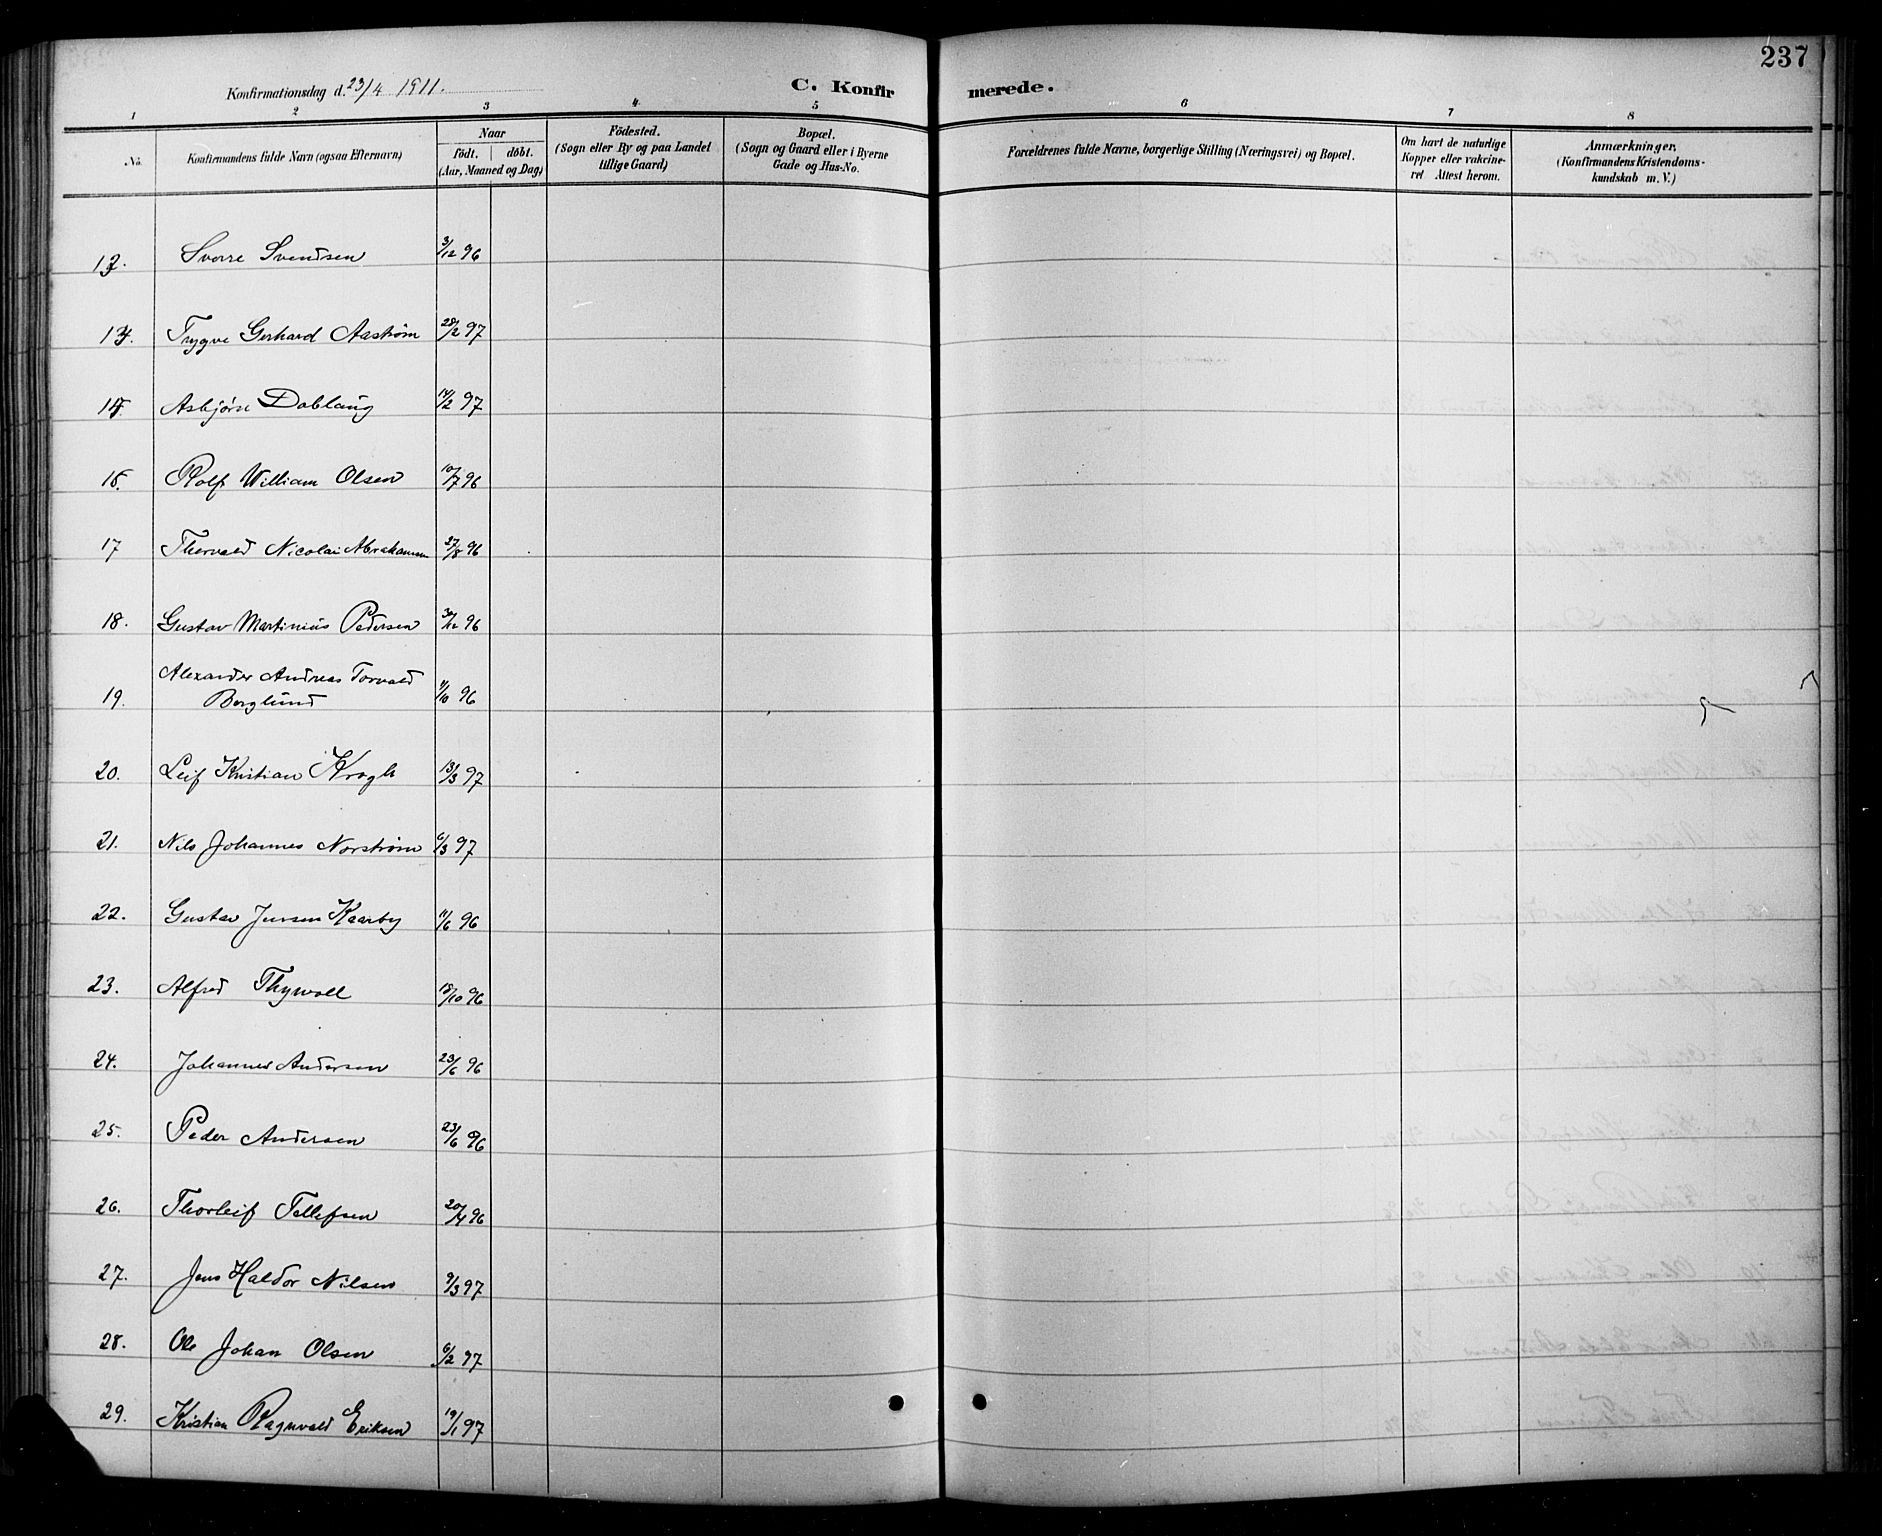 237
Konfirmationsdag d. 23/4 1911.
C. Konfirmerede.
1 2 3 4 5 6 7 8
No. Konfirmandens fulde Navn (ogsaa Efternavn) Naar Födt. döbt. (Aar, Maaned og Dag) Födested. (Sogn eller By og paa Landet tillige Gaard) Bopæl. (Sogn og Gaard eller i Byerne Gade og Hus-No. Forældrenes fulde Navne, borgerlige Stilling (Næringsvei) og Bopæl. Om havt de naturlige Kopper eller vakcineret Attest herom. Anmærkninger, (Konfirmandens Kristendomskundskab m. V.)
Sverre Svendsen 3/12 96
Trygve Gerhard Aastrøm 28/2 97
Asbjørn Dablaug 14/2 97
16. Rolf William Olsen 10/7 96
17 Thorvald Nicolai Abrahamsen 27/8 96
18. Gustav Martinius Pedersen 30/12 96
Alexander Andreas Torvald
19. Berglund 11/10 96
20. Leif Kristian Krogh 13/3 97
21. Nils Johannes Norstrøm 6/3 97
22. Gustav Jensen Kaarby 11/6 96
23. Alfred Thynvoll 18/10 96
24. Johannes Andersen 23/6 96
25. Peder Andersen 23/6 96
26. Thorleif Tellefsen 20/4 96
27. Jens Haldor Nilsen 9/3 97
28. Ole Johan Olsen 6/2 97
29. Kristian Ragnvald Eriksen 19/1 97